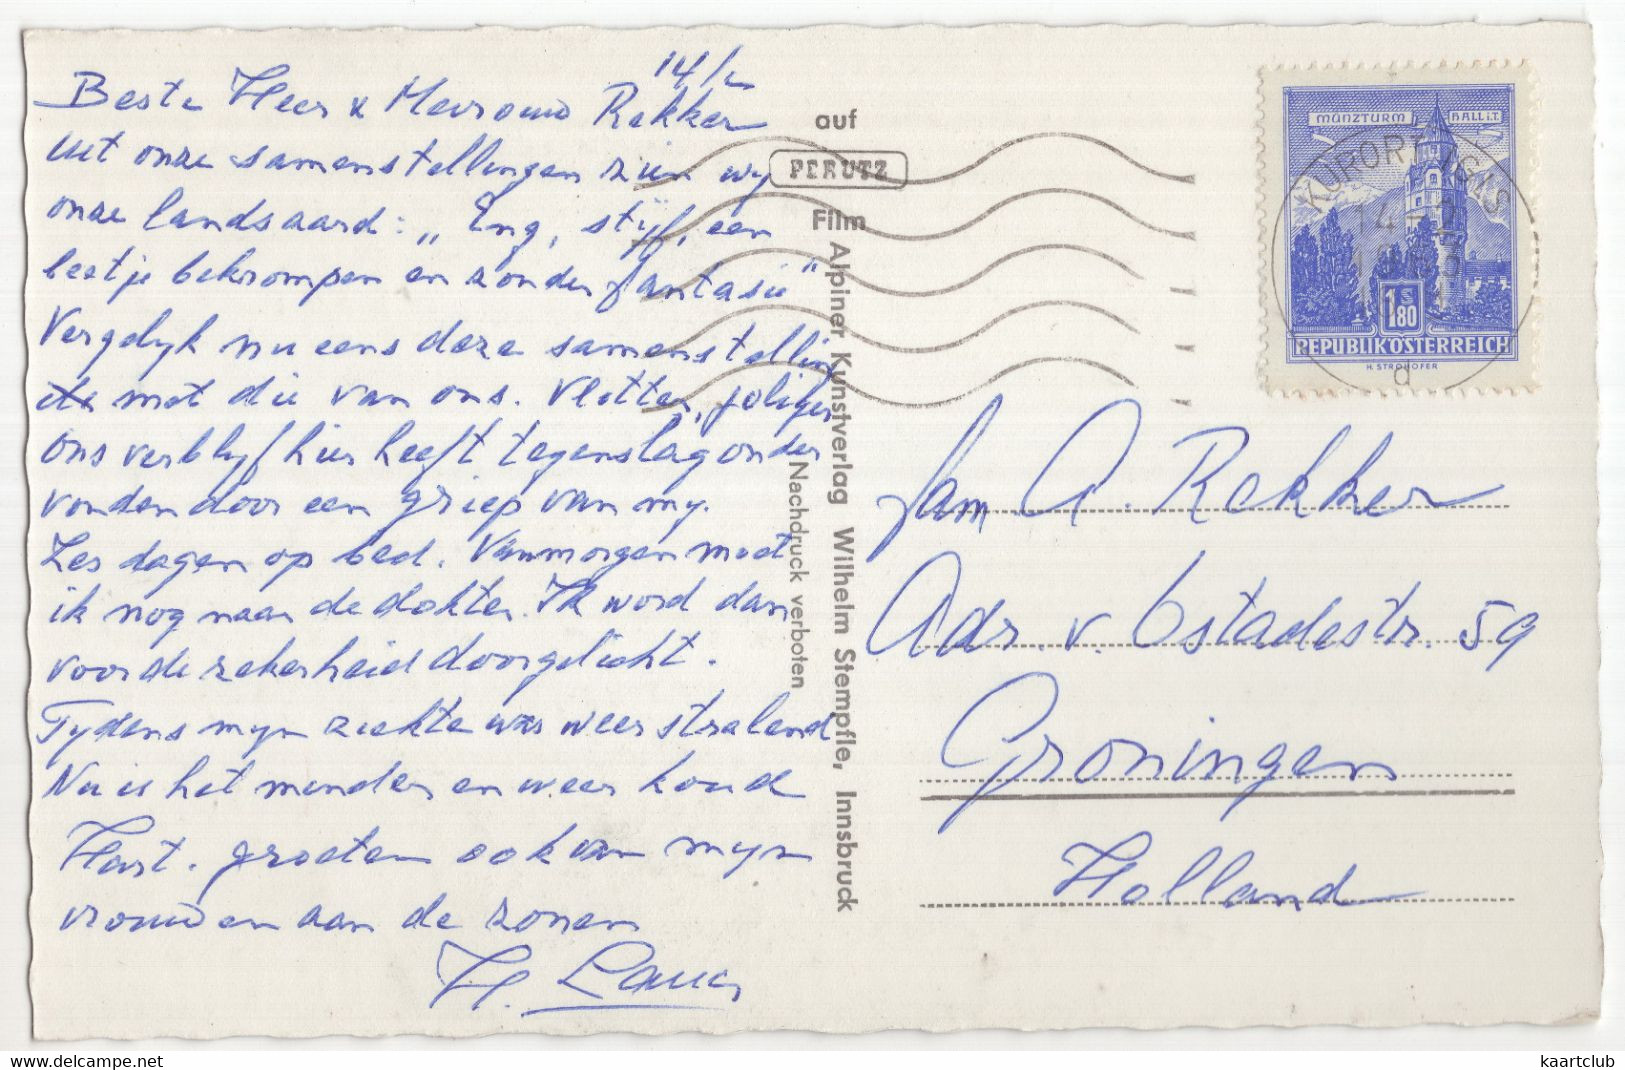 14/2
Beste Heer & Mevrouw Rekker
Uit onze samenstellingen zien wy
onze landsaard: „Eng, stijf, een
beetje bekrompen en zonder fantasie"
Vergelyk nu eens deze samenstelling
met die van ons. Vlotter, joliger
Ons verblyf hier heeft tegenslag onder
vonden door een griep van my.
Zes dagen op bed. Vanmorgen moet
ik nog naar de dokter. Ik word dan
voor de zekerheid doorgelicht.
Tydens myn ziekte was weer stralend
Nu is het minder en weer koud
Hart. groeten ook van myn
vrouw en aan de zonen
H.
auf
PERUTZ
Film
Alpiner Kunstverlag Wilhelm Stempfle, Innsbruck
Nachdruck verboten
MÜNZTURM HALL i.T.
1.80
S
REPUBLIK ÖSTERREICH
H. STROHOFER
KURORT IGLS
14.-2.
a
Fam. A. Rekker
Adr. v. Ostadestr. 59
Groningen
Holland
kaartclub